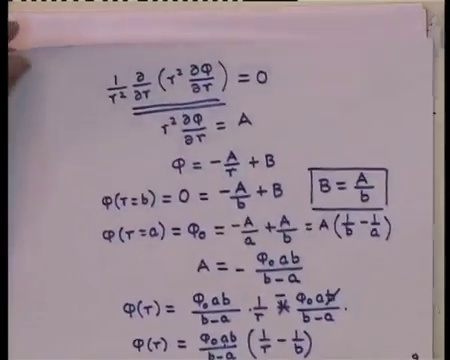 1/r² ∂/∂r (r² ∂φ/∂r) = 0
r² ∂φ/∂r = A
φ = -A/r + B
φ(r=b) = 0 = -A/b + B   B = A/b
φ(r=a) = φ₀ = -A/a + A/b = A(1/b - 1/a)
A = - φ₀ab/b-a
φ(r) = φ₀ab/b-a · 1/r - φ₀a/b-a .
φ(r) = φ₀ab/b-a (1/r - 1/b)